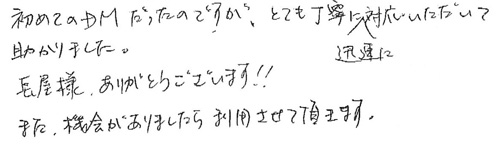 初めてのDMだったのですが、とても丁寧に対応いただいて
迅速に
助かりました。
長屋様、ありがとうございます!!
また、機会がありましたら利用させて頂きます。